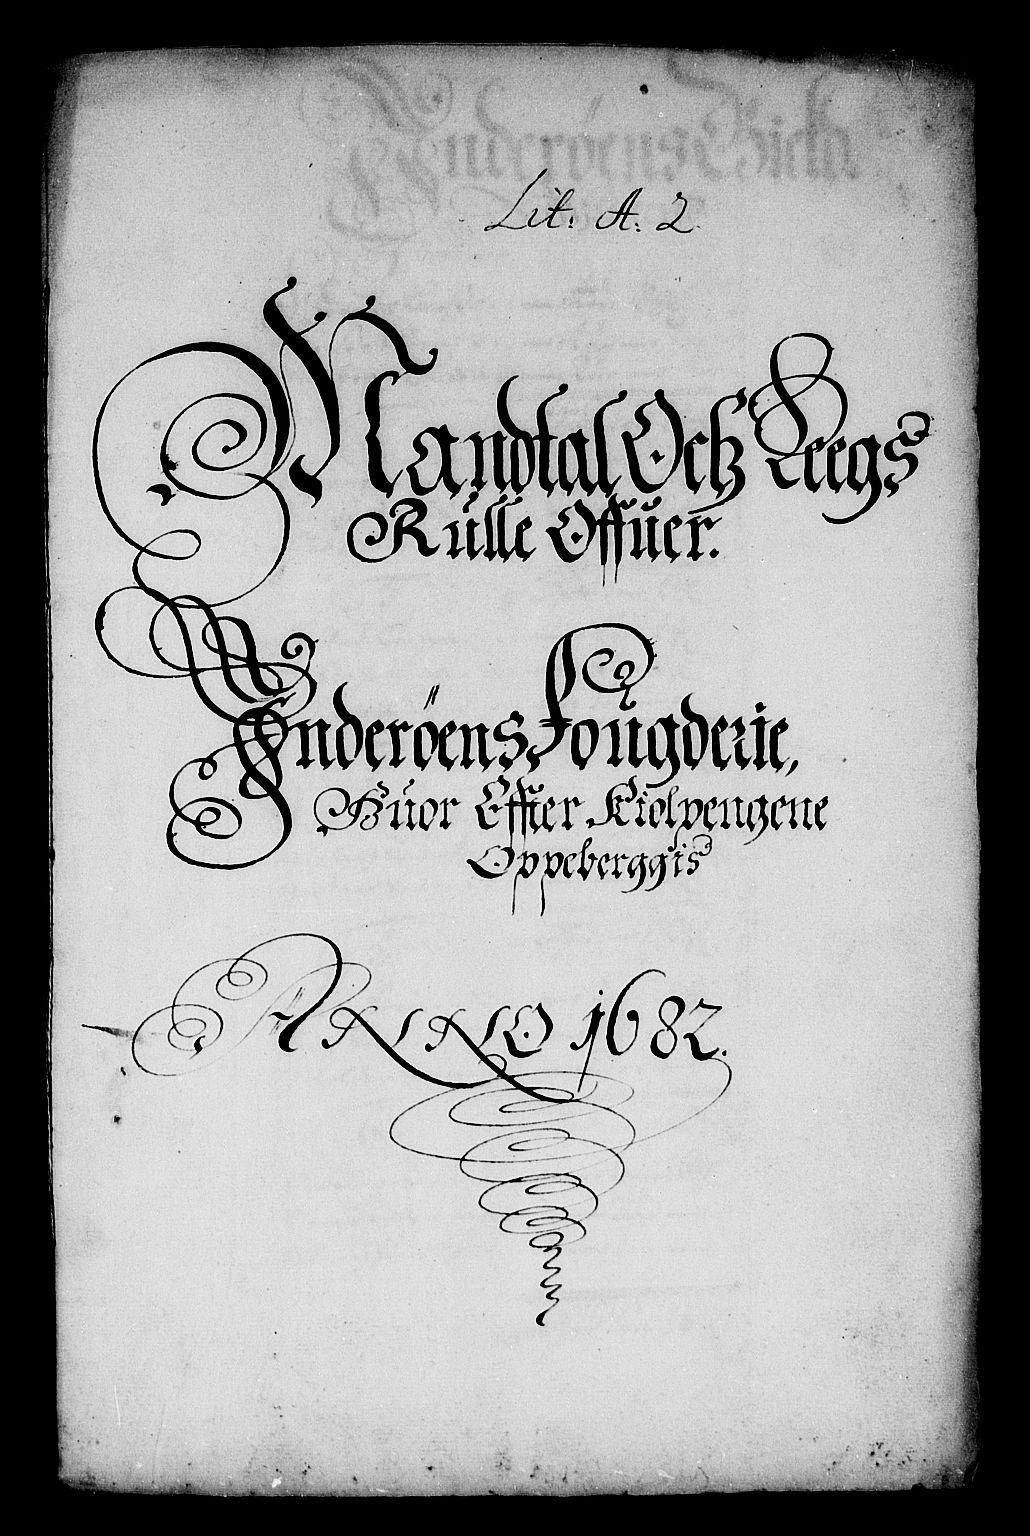 Lit: A: 2.
Mandtal Och Leegs
Rulle Offuer.
Inderöens Fougderie,
Huor Effter Kiolpengene
Oppeberggis
ANNO 1682.